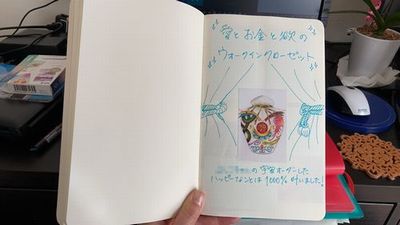 愛とお金と欲の
ウォークインクローゼット
の宇宙オーダーした
ハッピーなことは1000%叶いました!